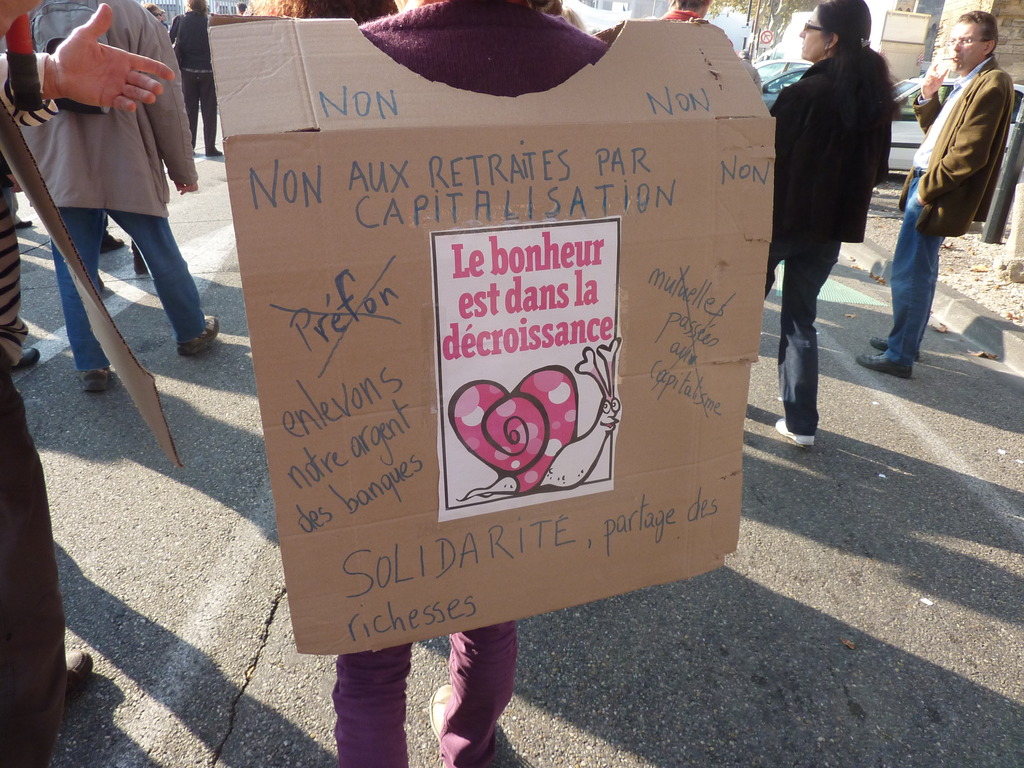 NON
NON
NON AUX RETRAITES PAR NON
CAPITALISATION
Le bonheur
est dans la
décroissance
Préfon
enlevons
notre argent
des banques
mutuelles
passées
au
Capitalisme
SOLIDARITÉ, partage des
richesses